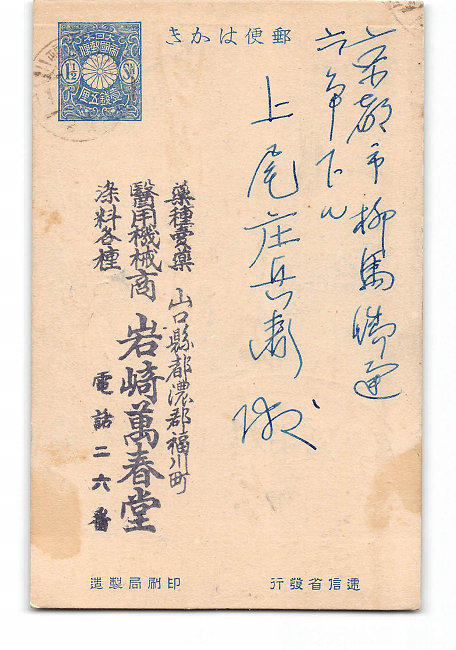 郵便はかき
大日本
帝國郵便
1½ Sn
壹錢五厘
京都市柳馬場通
六角下ル
上尾庄兵衛 様
藥種賣藥
醫用機械商
染料各種
山口縣都濃郡福川町
岩崎萬春堂
電話二六番
遞信省發行
印刷局製造